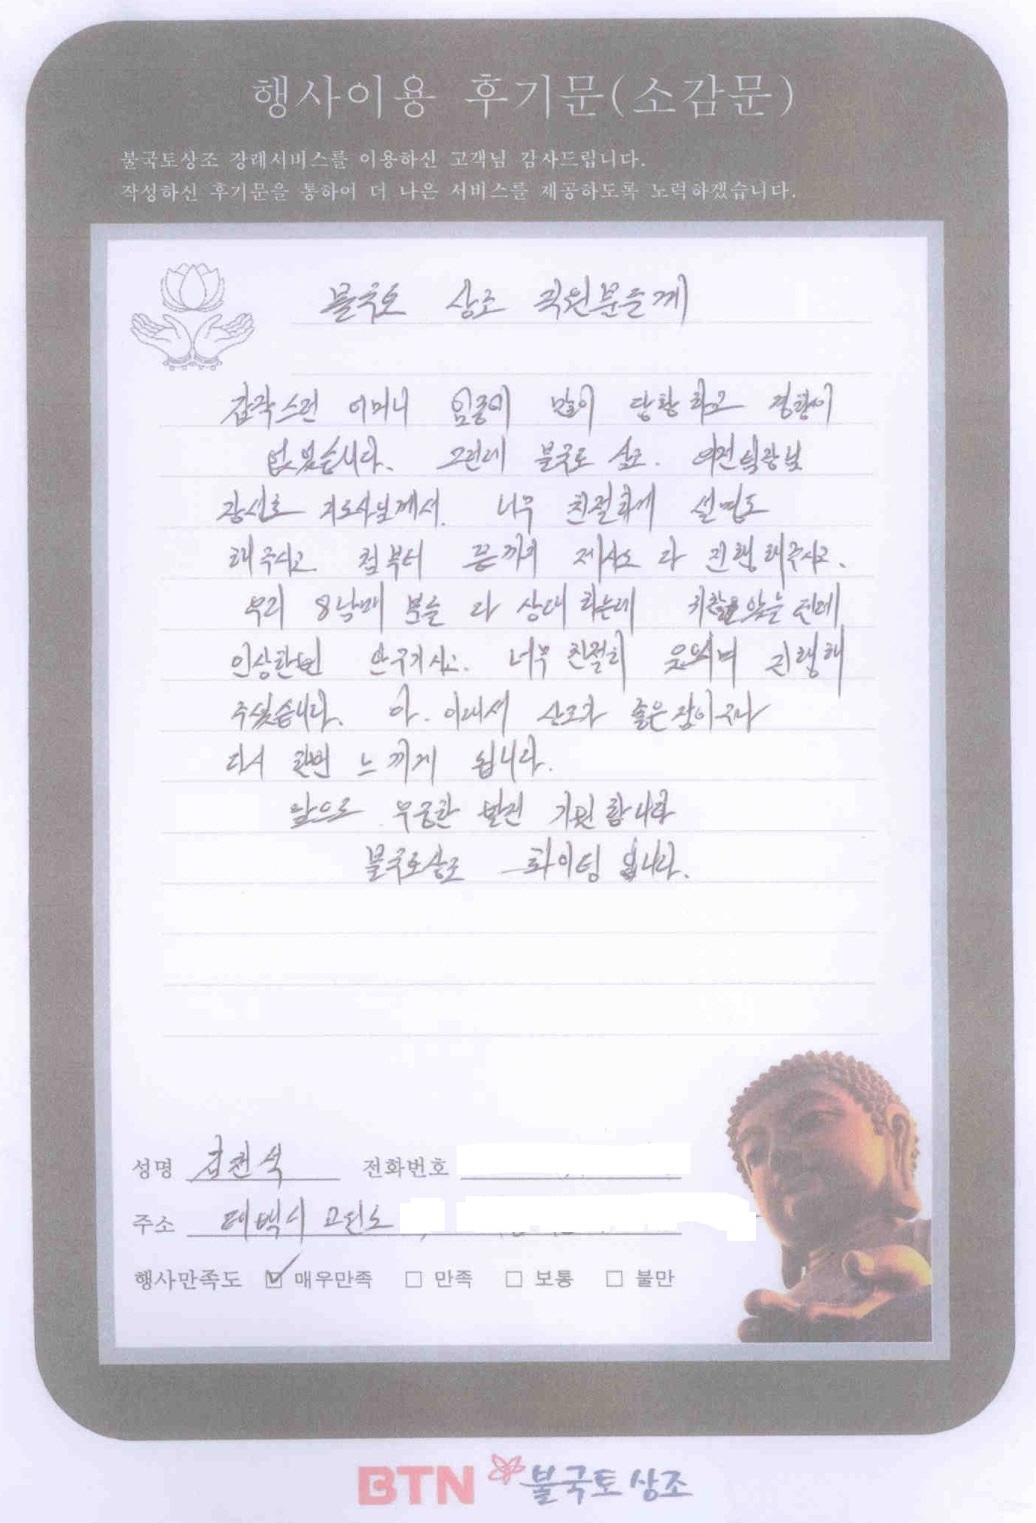 행사이용 후기문(소감문)
불국토상조 장례서비스를 이용하신 고객님 감사드립니다.
작성하신 후기문을 통하여 더 나은 서비스를 제공하도록 노력하겠습니다.
불국토 상조 직원분들께
갑작스런 어머니 임종에 많이 당황하고 경황이
없었습니다. 그런데 불국토 상조.
강선호 지도사님께서. 너무 친절하게 설명도
해주시고 첨부터 끝까지 제사도 다 진행해주시고.
우리 8남매 분을 다 상대 하는데 있을텐데
인상한번 안구기시고. 너무 친절히 웃으시며 진행해
주셨습니다. 아. 이래서 상조가 좋은 점이구나
다시 한번 느끼게 됩니다.
앞으로 무궁한 발전 기원합니다
불국토상조 화이팅 입니다.
성명 김권석 전화번호
주소 태백시
행사만족도 ☑ 매우만족 □ 만족 □ 보통 □ 불만
BTN 불국토상조